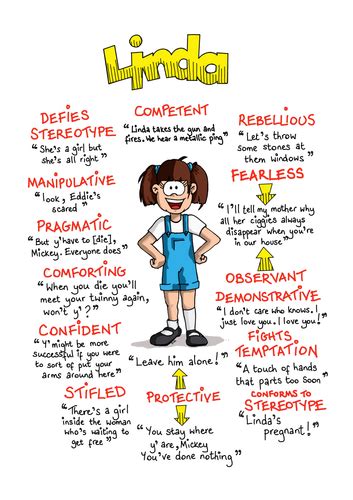 Linda
DEFIES
STEREOTYPE
"She's a girl but
she's all right"
MANIPULATIVE
"look, Eddie's
scared"
PRAGMATIC
"But y'have to [die],
Mickey. Everyone does"
COMFORTING
"When you die you'll
meet your twinny again,
won't y'?"
CONFIDENT
"Y'might be more
successful if you were
to sort of put your
arms around here"
STIFLED
"There's a girl
inside the woman
who's waiting to
get free"
COMPETENT
"Linda takes the gun and
fires. We hear a metallic ping"
"Leave him alone!"
PROTECTIVE
"You stay where
y'are, Mickey
You've done nothing"
REBELLIOUS
"Let's throw
some stones at
them windows"
FEARLESS
"I'll tell my mother why
all her ciggies always
disappear when you're
in our house"
OBSERVANT
DEMONSTRATIVE
"I don't care who knows. I
just love you. I love you!"
FIGHTS
TEMPTATION
"A touch of hands
that parts too soon"
CONFORMS TO
STEREOTYPE
"Linda's
pregnant!"